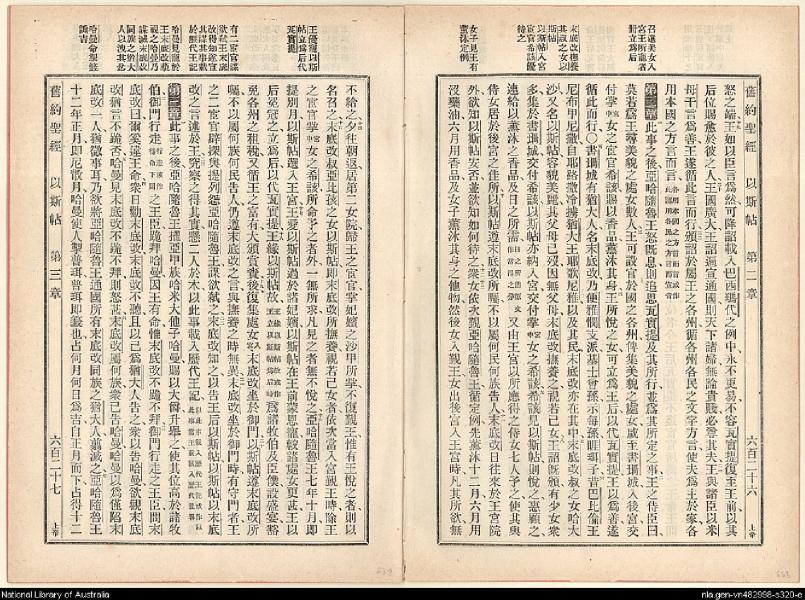 召選美女入
宮王所寵者
冊立為后
末底改撫養
其叔之女以
斯帖
以斯帖入宮
宦官希該優
待之
女子見王有
薰沐定例
舊約聖經 以斯帖 第二章 六百二十六 上帝
怒之端王如以臣言為然可降詔載入巴西瑪代之例中永不更易不容瓦實提復至王前以其
后位賜愈於彼之人王國廣大王詔遍宣通國則天下諸婦無論貴賤必尊其夫王與諸臣以米
母干言為善王遂循此言而行頒詔於屬王之各州循各州各民之文字方言使夫為主於家各
用本國之方言而言
第二章 此事之後亞哈隨魯王怒既息則追思瓦實提及其所行並為其所定之事王之侍臣曰
莫若為王尋美貌之處女數人王可設官於國之各州俾集美貌之處女咸至書珊城入後宮交
付掌女之宦官希該賜以香品薰沐其身王所悅之女可立為后以代瓦實提王以為善遂
循此而行○書珊城有猶大人名末底改乃便雅憫支派基士曾孫示每孫睚珥子昔巴比倫王
尼布甲尼撒自耶路撒冷擄猶大王耶歌尼雅以及其民末底改亦在其中末底改叔之女哈大
沙又名以斯帖容貌美麗其父母已歿因無父母末底改撫養之視若己女王詔既頒有少女衆
多集於書珊城交付希該以斯帖亦納入宮交付掌女之希該希該見以斯帖則悅之恩顧之
速給以薰沐之香品及日之所需又由王宮以所應得之侍女七人予之使其與
侍女居於後宮之佳所以斯帖遵末底改所囑不以屬何民何族告人末底改日往來於王宮院
外欲知以斯帖安否並欲知如何待之衆女依次覲亞哈隨魯王循定例先薰沐十二月六月用
沒藥油六月用香品及女子薰沐其身之他物然後女入覲王女出後宮入王宮時凡其所欲無
王優寵以斯
帖立為后代
瓦實提
有二宦官謀
欲弒王末底
改得知遂宣
其謀其事載
於歷代王記
哈曼見寵於
王末底改不
拜之哈曼乃
謀滅末底改
同族之猶大
人以洩其忿
哈曼命掣籤
諏吉
不給之夕往朝返居第二女院歸王之宦官掌妃嬪之沙甲所掌不復覲王惟有王悅之者則以
名召之末底改叔亞比孩之女以斯帖即末底改所撫養視若己女者依次當入宮覲王時除王
之宦官掌女之希該所命予之者外一無所求凡見之者無不悅之亞哈隨魯王七年十月即
提別月以斯帖選入王宮王愛以斯帖過於諸妃嬪以斯帖在王前蒙恩寵較諸處女更甚王以
后冕冠之立為后以代瓦實提王緣以斯帖故為諸牧伯及臣僕設盛宴豁
免各州之租稅又循王之富有大頒賞賚後復集處女末底改坐於御門以斯帖遵末底改所
囑不以屬何族何民告人仍遵末底改之言與撫養之時無異末底改坐於御門時有守門者王
之二宦官辟探與提列怨亞哈隨魯王謀欲弒之末底改知之以告王后以斯帖以斯帖以末底
改之言達於王究察之得其實懸二人於木以此事載入歷代王記
第三章 此事之後亞哈隨魯王擢亞甲族哈米大他子哈曼賜以大爵升舉之使其位高於諸牧
伯御門行走之王臣跪拜哈曼因王有命惟末底改不跪不拜御門行走之王臣問末
底改曰爾奚違王命衆日勸末底改末底改不聽且以己為猶大人告之衆以告哈曼欲觀末底
改猶言不跪否哈曼見末底改不跪不拜則怒甚末底改屬何族衆已告哈曼哈曼以為僅陷末
底改一人猶微事耳乃欲將亞哈隨魯王通國所有末底改同族之猶大人翦滅之亞哈隨魯王
十二年正月即尼散月哈曼使人掣普珥普珥即籤也占何月何日為吉自正月而下占得十二
舊約聖經 以斯帖 第三章 六百二十七 上帝
National Library of Australia
nla.gen-vn482998-s320-e